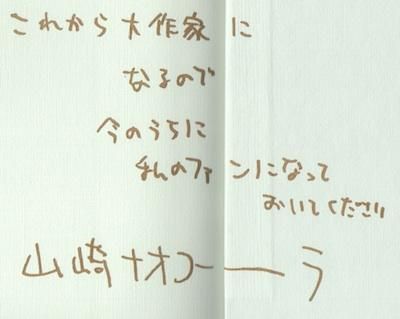 これから大作家に
なるので
今のうちに
私のファンになって
おいてください
山崎ナオコーラ